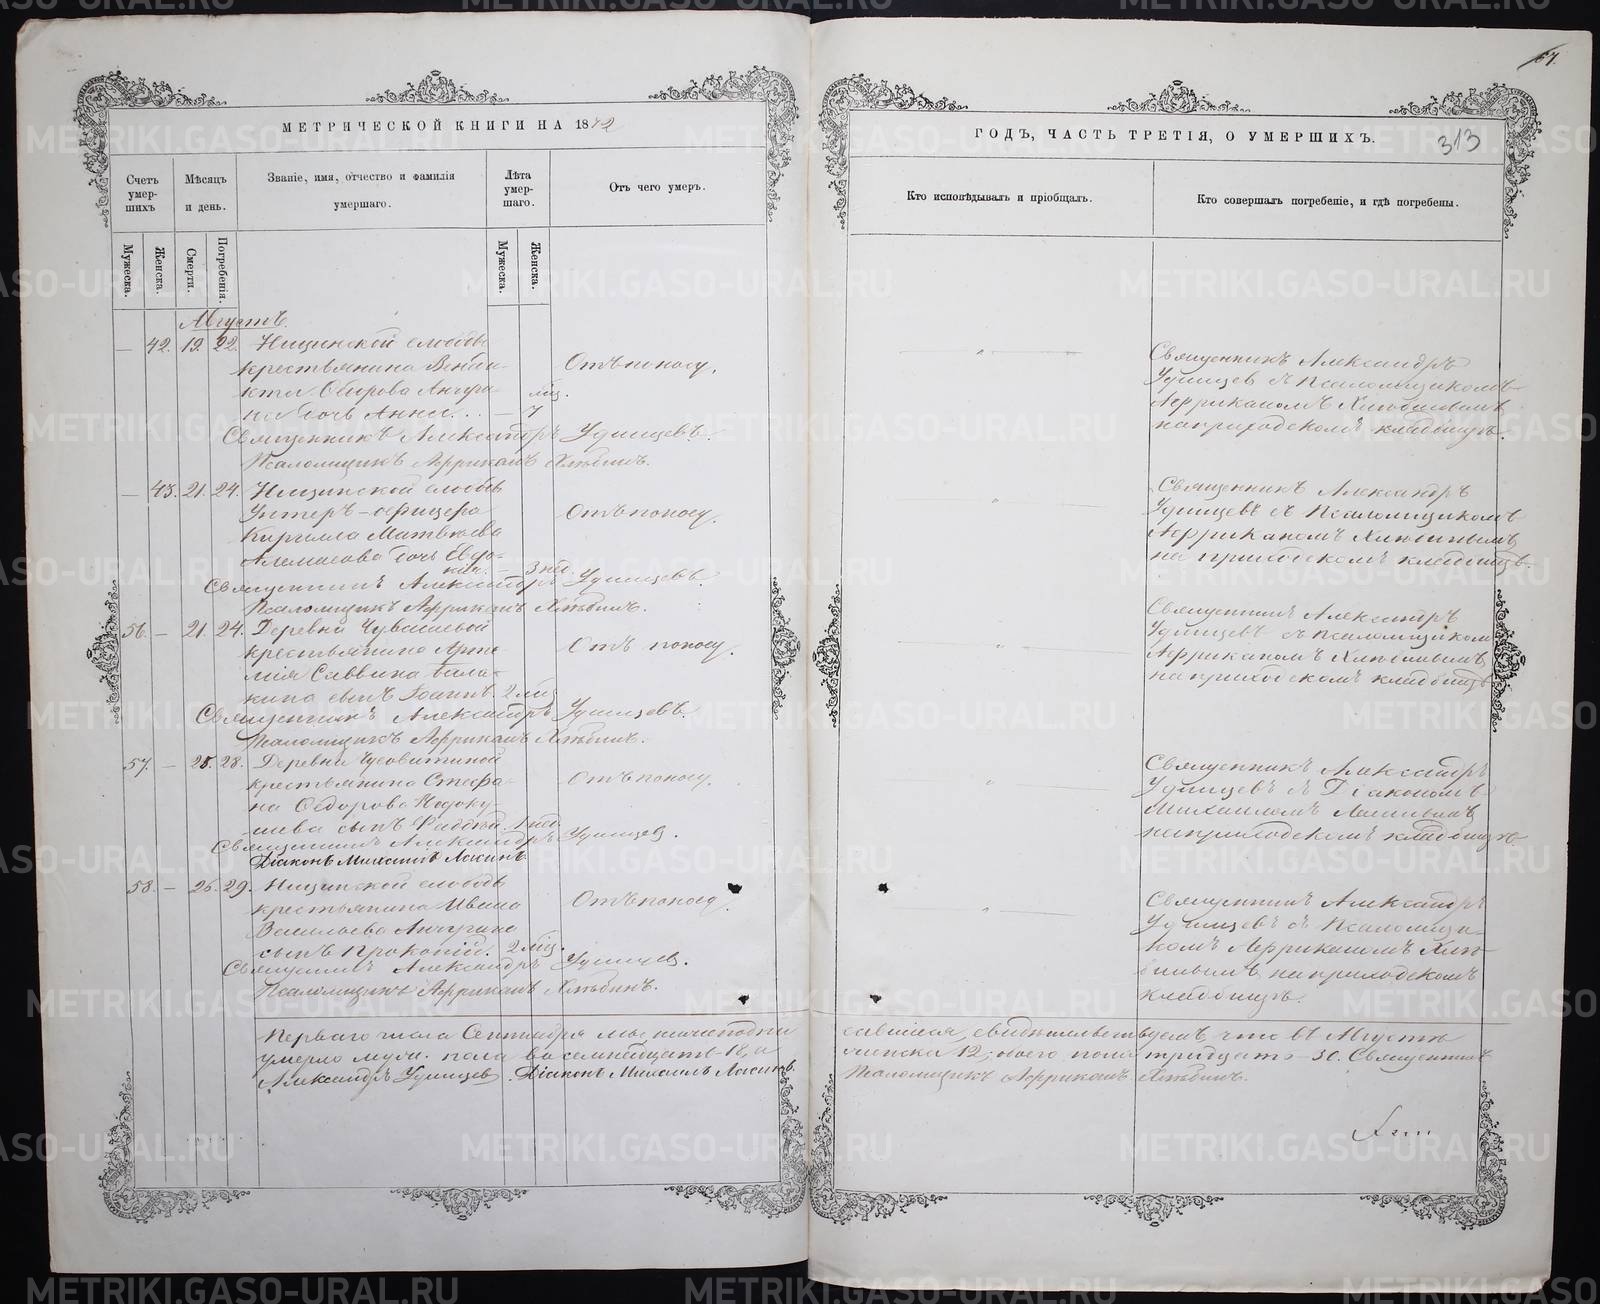 МЕТРИЧЕСКОЙ КНИГИ НА 1872
Счетъ умер-шихъ
Мѣсяцъ и день.
Званіе, имя, отчество и фамилія умершаго.
Лѣта умер-шаго.
Отъ чего умеръ.
Мужеска.
Женска.
Смерти.
Погребенія.
Мужеска.
Женска.
Августъ.
— 42. 19. 22. Ницинской слободы
крестьянина
Отъ поносу.
мѣс.
дочь Анна. . . — 7
Священникъ Александръ Удинцевъ.
Псаломщикъ Африканъ Хлѣбинъ.
— 43. 21. 24. Ницинской слободы
Унтеръ-офицера
Отъ поносу.
Кирилла Матвѣева
дочь Евдо-
кія. — 3 нед.
Священникъ Александръ Удинцевъ.
Псаломщикъ Африканъ Хлѣбинъ.
56. — 21. 24. Деревни Чувашевой
крестьянина Арте-
Отъ поносу.
мія Саввина Бала-
кина сынъ Іоаннъ. 2 мѣс.
Священникъ Александръ Удинцевъ.
Псаломщикъ Африканъ Хлѣбинъ.
57. — 25. 28. Деревни
крестьянина Стефа-
Отъ поносу.
на Ѳедорова
сынъ Фаддей. 1 нед.
Священникъ Александръ Удинцев.
Діаконъ Михаилъ Ляпинъ
58. — 26. 29. Ницинской слободы
крестьянина Ивана
Отъ поносу.
Васильева Анчугина
сынъ Прокопій. 2 мѣс.
Священникъ Александръ Удинцев.
Псаломщикъ Африканъ Хлѣбинъ.
Перваго числа Сентября мы, нижеподпи
умерло муж. пола восемнадцать 18, и
Александръ Удинцев. Діаконъ Михаилъ
67.
ГОДЪ, ЧАСТЬ ТРЕТІЯ, О УМЕРШИХЪ.
313
Кто исповѣдывалъ и пріобщалъ.
Кто совершалъ погребеніе, и гдѣ погребены.
Священникъ Александръ
Удинцев съ Псаломщикомъ
Африканомъ Хлѣбинымъ
на приходскомъ кладбищѣ.
Священникъ Александръ
Удинцевъ съ Псаломщикомъ
Африканомъ Хлѣбинымъ
на приходскомъ кладбищѣ.
Священникъ Александръ
Удинцевъ съ Псаломщикомъ
Африканомъ Хлѣбинымъ
на приходскомъ кладбищѣ
Священникъ Александръ
Удинцевъ съ Діакономъ
Михаиломъ
на приходскомъ кладбищѣ.
Священникъ Александръ
Удинцевъ съ Псаломщи-
комъ Африканомъ Хлѣ-
бинымъ на приходскомъ
кладбищѣ.
савшіеся, свидѣтельствуемъ, что въ Августѣ
женска 12, обоего пола тридцать 30. Священникъ
Псаломщикъ Африканъ Хлѣбинъ.
METRIKI.GASO-URAL.RU